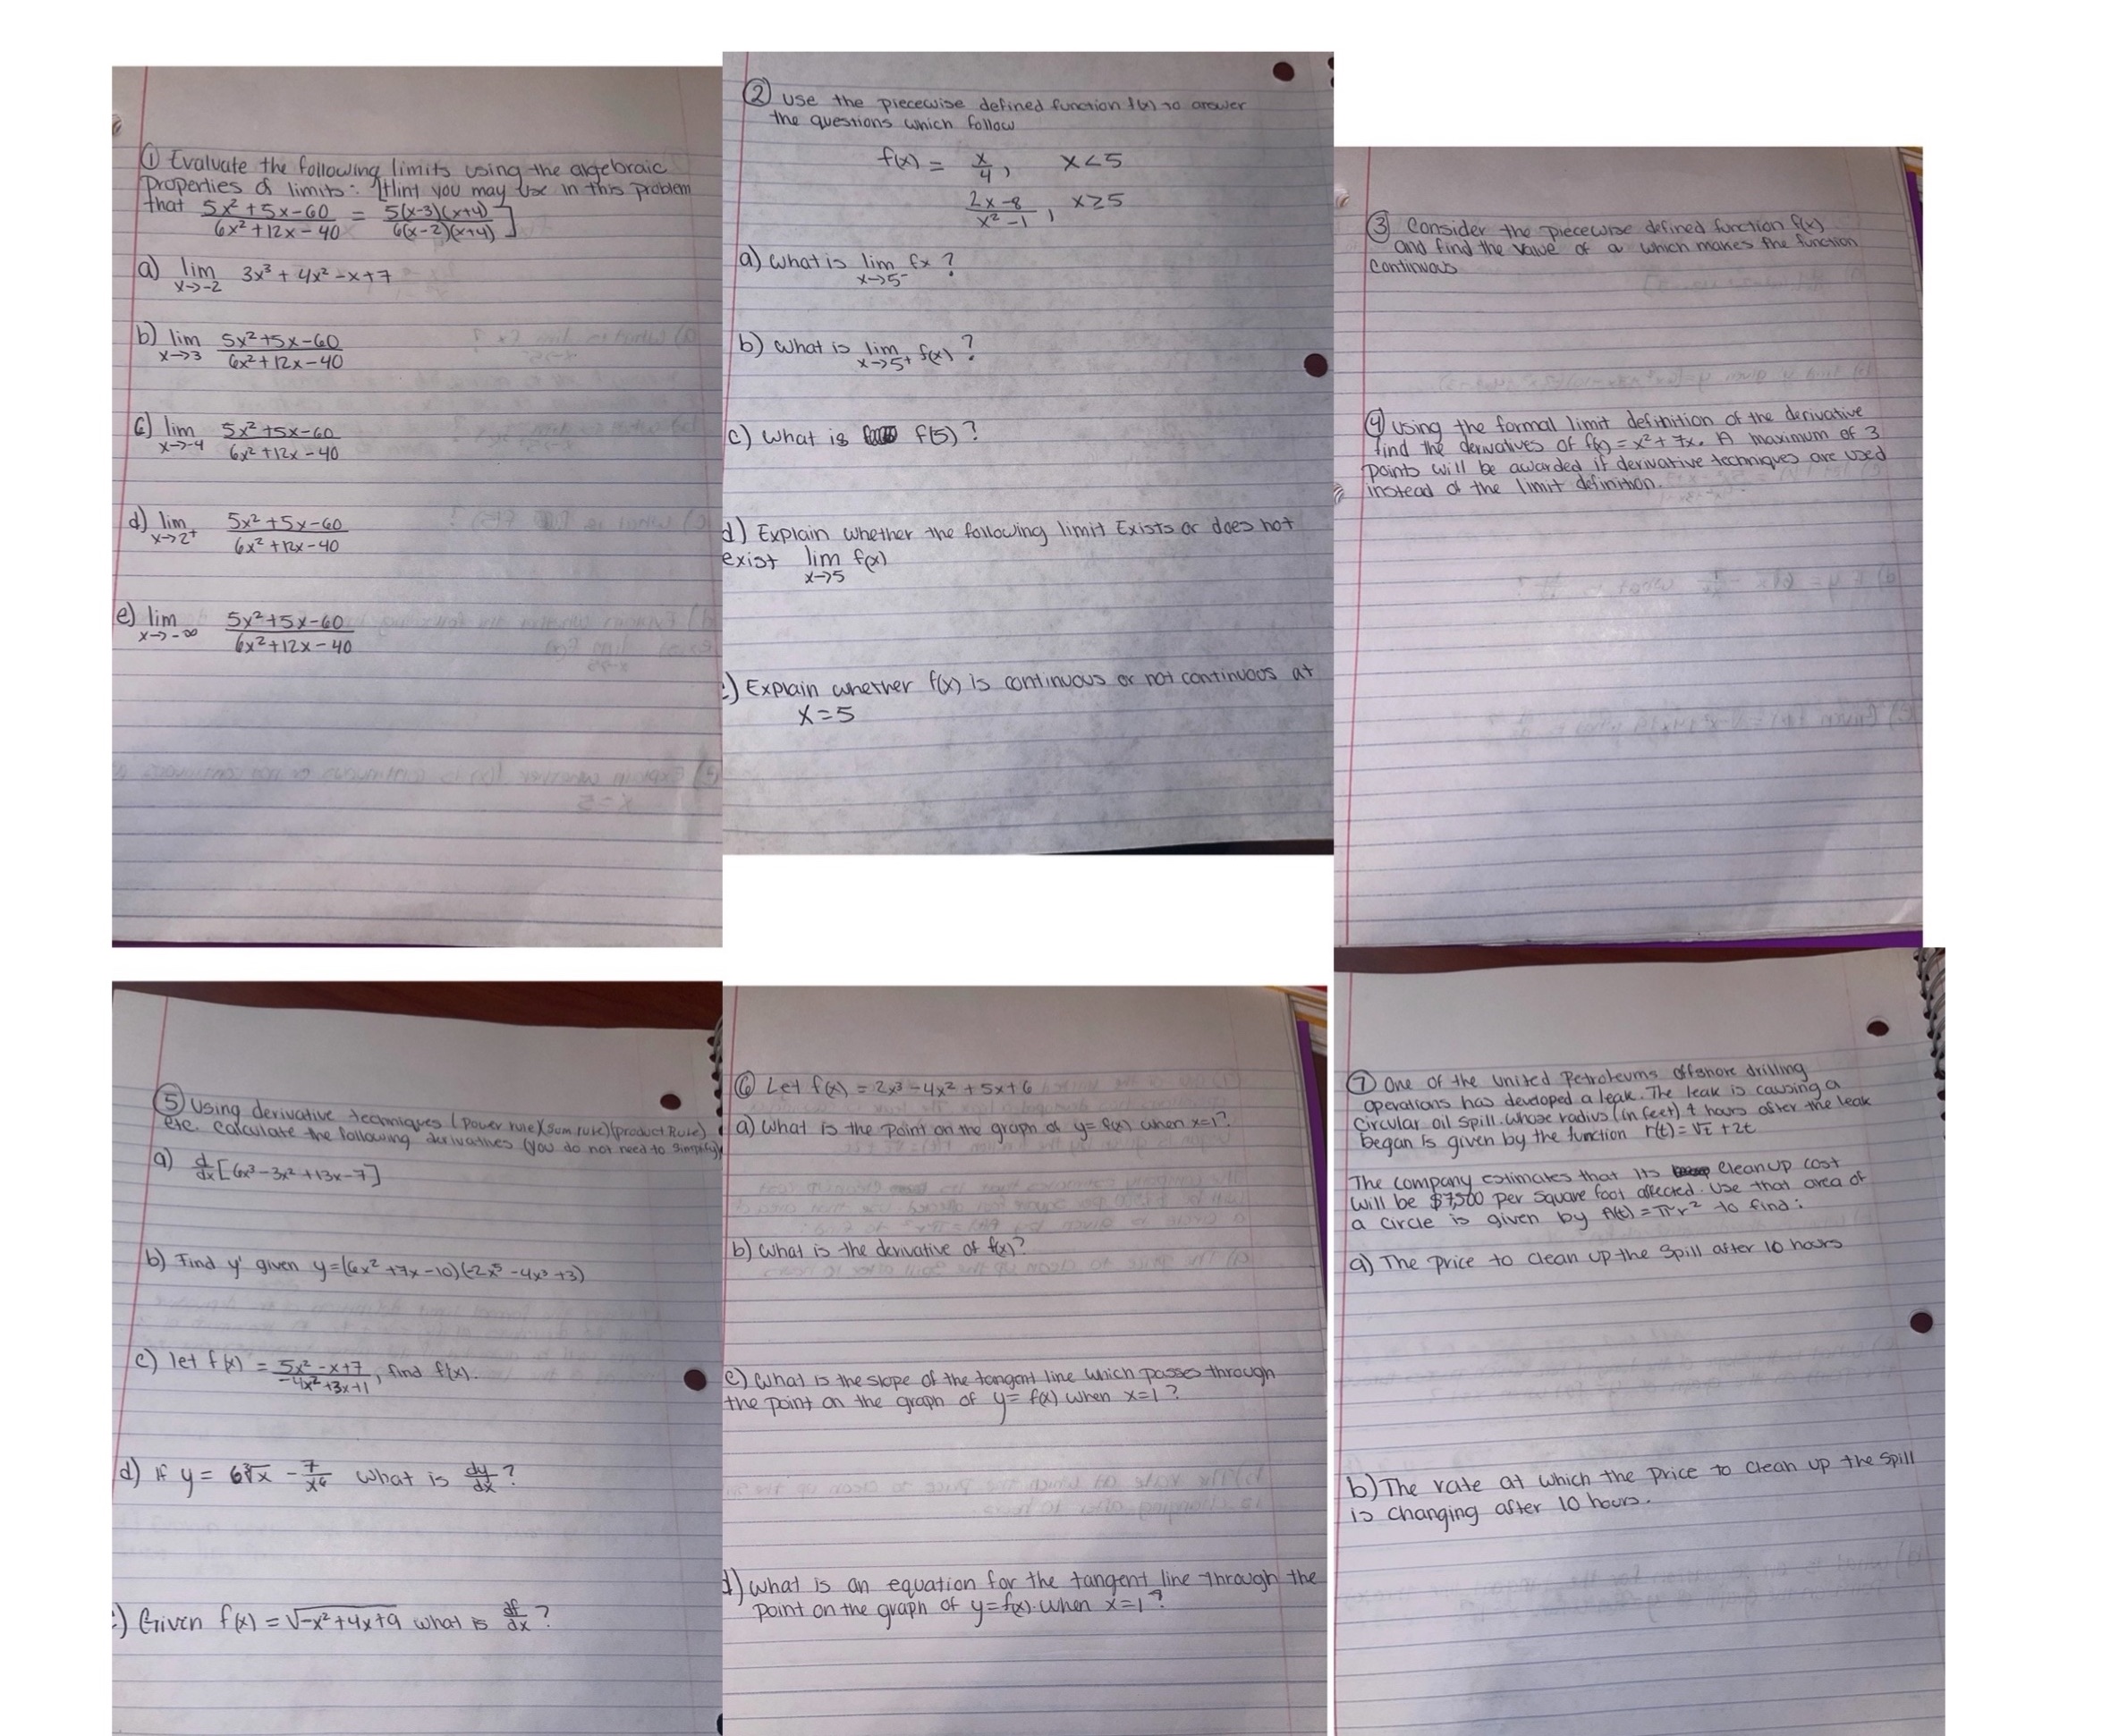 ① Evaluate the following limits using the algebraic
Properties of limits: [Hint you may use in this problem
that (5x² + 5x - 60)/(6x² + 12x - 40) = 5(x-3)(x+4)/6(x-2)(x+4)]
a) lim x→-2 3x³ + 4x² - x + 7
b) lim x→3 (5x² + 5x - 60)/(6x² + 12x - 40)
c) lim x→-4 (5x² + 5x - 60)/(6x² + 12x - 40)
d) lim x→2⁺ (5x² + 5x - 60)/(6x² + 12x - 40)
e) lim x→-∞ (5x² + 5x - 60)/(6x² + 12x - 40)
② Use the piecewise defined function f(x) to answer
the questions which follow
f(x) = x/4, x < 5
(2x - 8)/(x² - 1), x ≥ 5
a) What is lim x→5⁻ fx ?
b) What is lim x→5⁺ f(x) ?
c) What is f(5) ?
d) Explain whether the following limit Exists or does not
exist lim x→5 f(x)
) Explain whether f(x) is continuous or not continuous at
x = 5
③ Consider the piecewise defined function f(x)
and find the value of a which makes the function
continuous
④ Using the formal limit definition of the derivative
find the derivatives of f(x) = x² + 7x. A maximum of 3
points will be awarded if derivative techniques are used
instead of the limit definition.
⑤ Using derivative techniques (power rule)(sum rule)(product Rule)
etc. calculate the following derivatives (you do not need to simplify)
a) d/dx [6x³ - 3x² + 13x - 7]
b) Find y' given y = (6x² + 7x - 10)(-2x⁵ - 4x³ + 3)
c) let f(x) = (5x² - x + 7)/(-4x² + 3x + 1), find f(x).
d) If y = 6∛x - 7/x⁶ what is dy/dx ?
) Given f(x) = √(-x² + 4x + 9) what is df/dx ?
⑥ Let f(x) = 2x³ - 4x² + 5x + 6
a) What is the point on the graph of y = f(x) when x = 1 ?
b) What is the derivative of f(x)?
c) What is the slope of the tangent line which passes through
the point on the graph of y = f(x) when x = 1 ?
d) What is an equation for the tangent line through the
point on the graph of y = f(x) when x = 1 ?
⑦ One of the United Petroleums offshore drilling
operations has developed a leak. The leak is causing a
circular oil spill. Whose radius (in feet) t hours after the leak
began is given by the function r(t) = √t + 2t
The company estimates that its cleanup cost
will be $7,500 per square foot affected. Use that area of
a circle is given by A(t) = πr² to find:
a) The price to clean up the spill after 10 hours
b) The rate at which the price to clean up the spill
is changing after 10 hours.